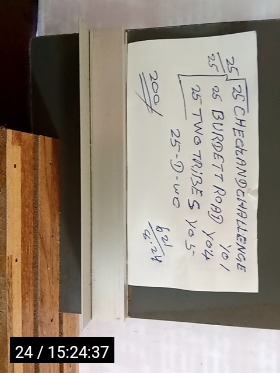 25 25 CHECKANDCHALLENGE YO1
25 25 BURDETT ROAD YO4
25 TWO TRIBES YO5
25-D-WO
200
24 / 15:24:37